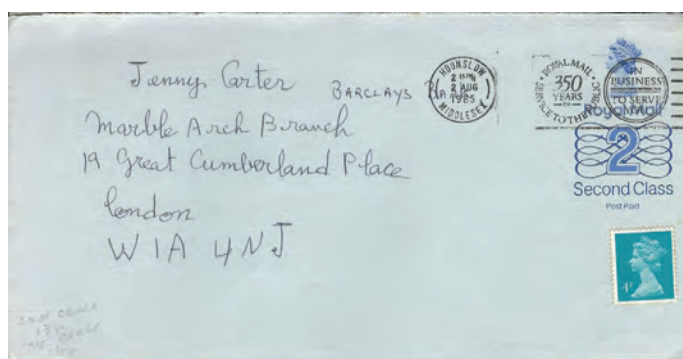 Jenny Carter
BARCLAYS
Marble Arch Branch
19 Great Cumberland Place
London
W1A 4NJ
HOUNSLOW
2 AUG
1985
MIDDLESEX
ROYAL MAIL
350
YEARS
OF
SERVICE TO THE PUBLIC
IN
BUSINESS
TO SERVE
Royal Mail
2
Second Class
Post Paid